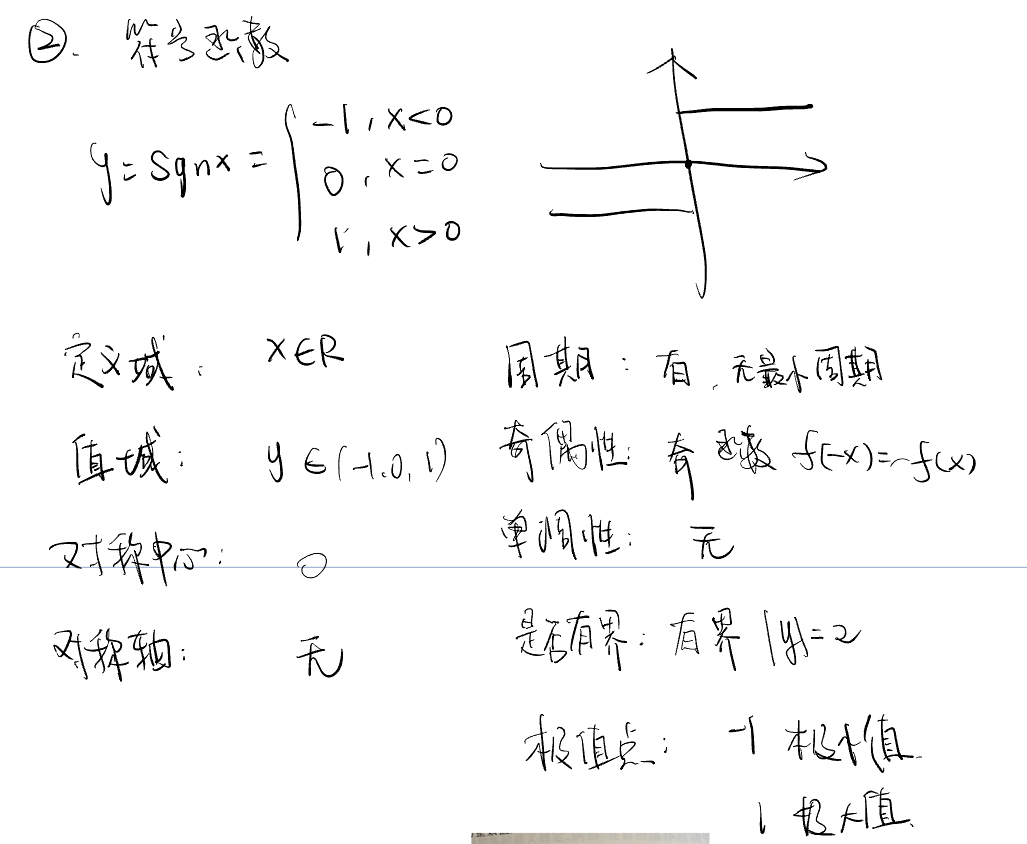 ②. 符号函数
y = sgn x = { -1, x<0
0, x=0
1, x>0
定义域: x∈R
值域: y∈(-1.0,1)
对称中心: 0
对称轴: 无
周期: 有, 无最小周期
奇偶性: 奇函数 f(-x)=-f(x)
单调性: 无
是否有界: 有界 |y|=2
极值点: -1 极小值
1 极大值